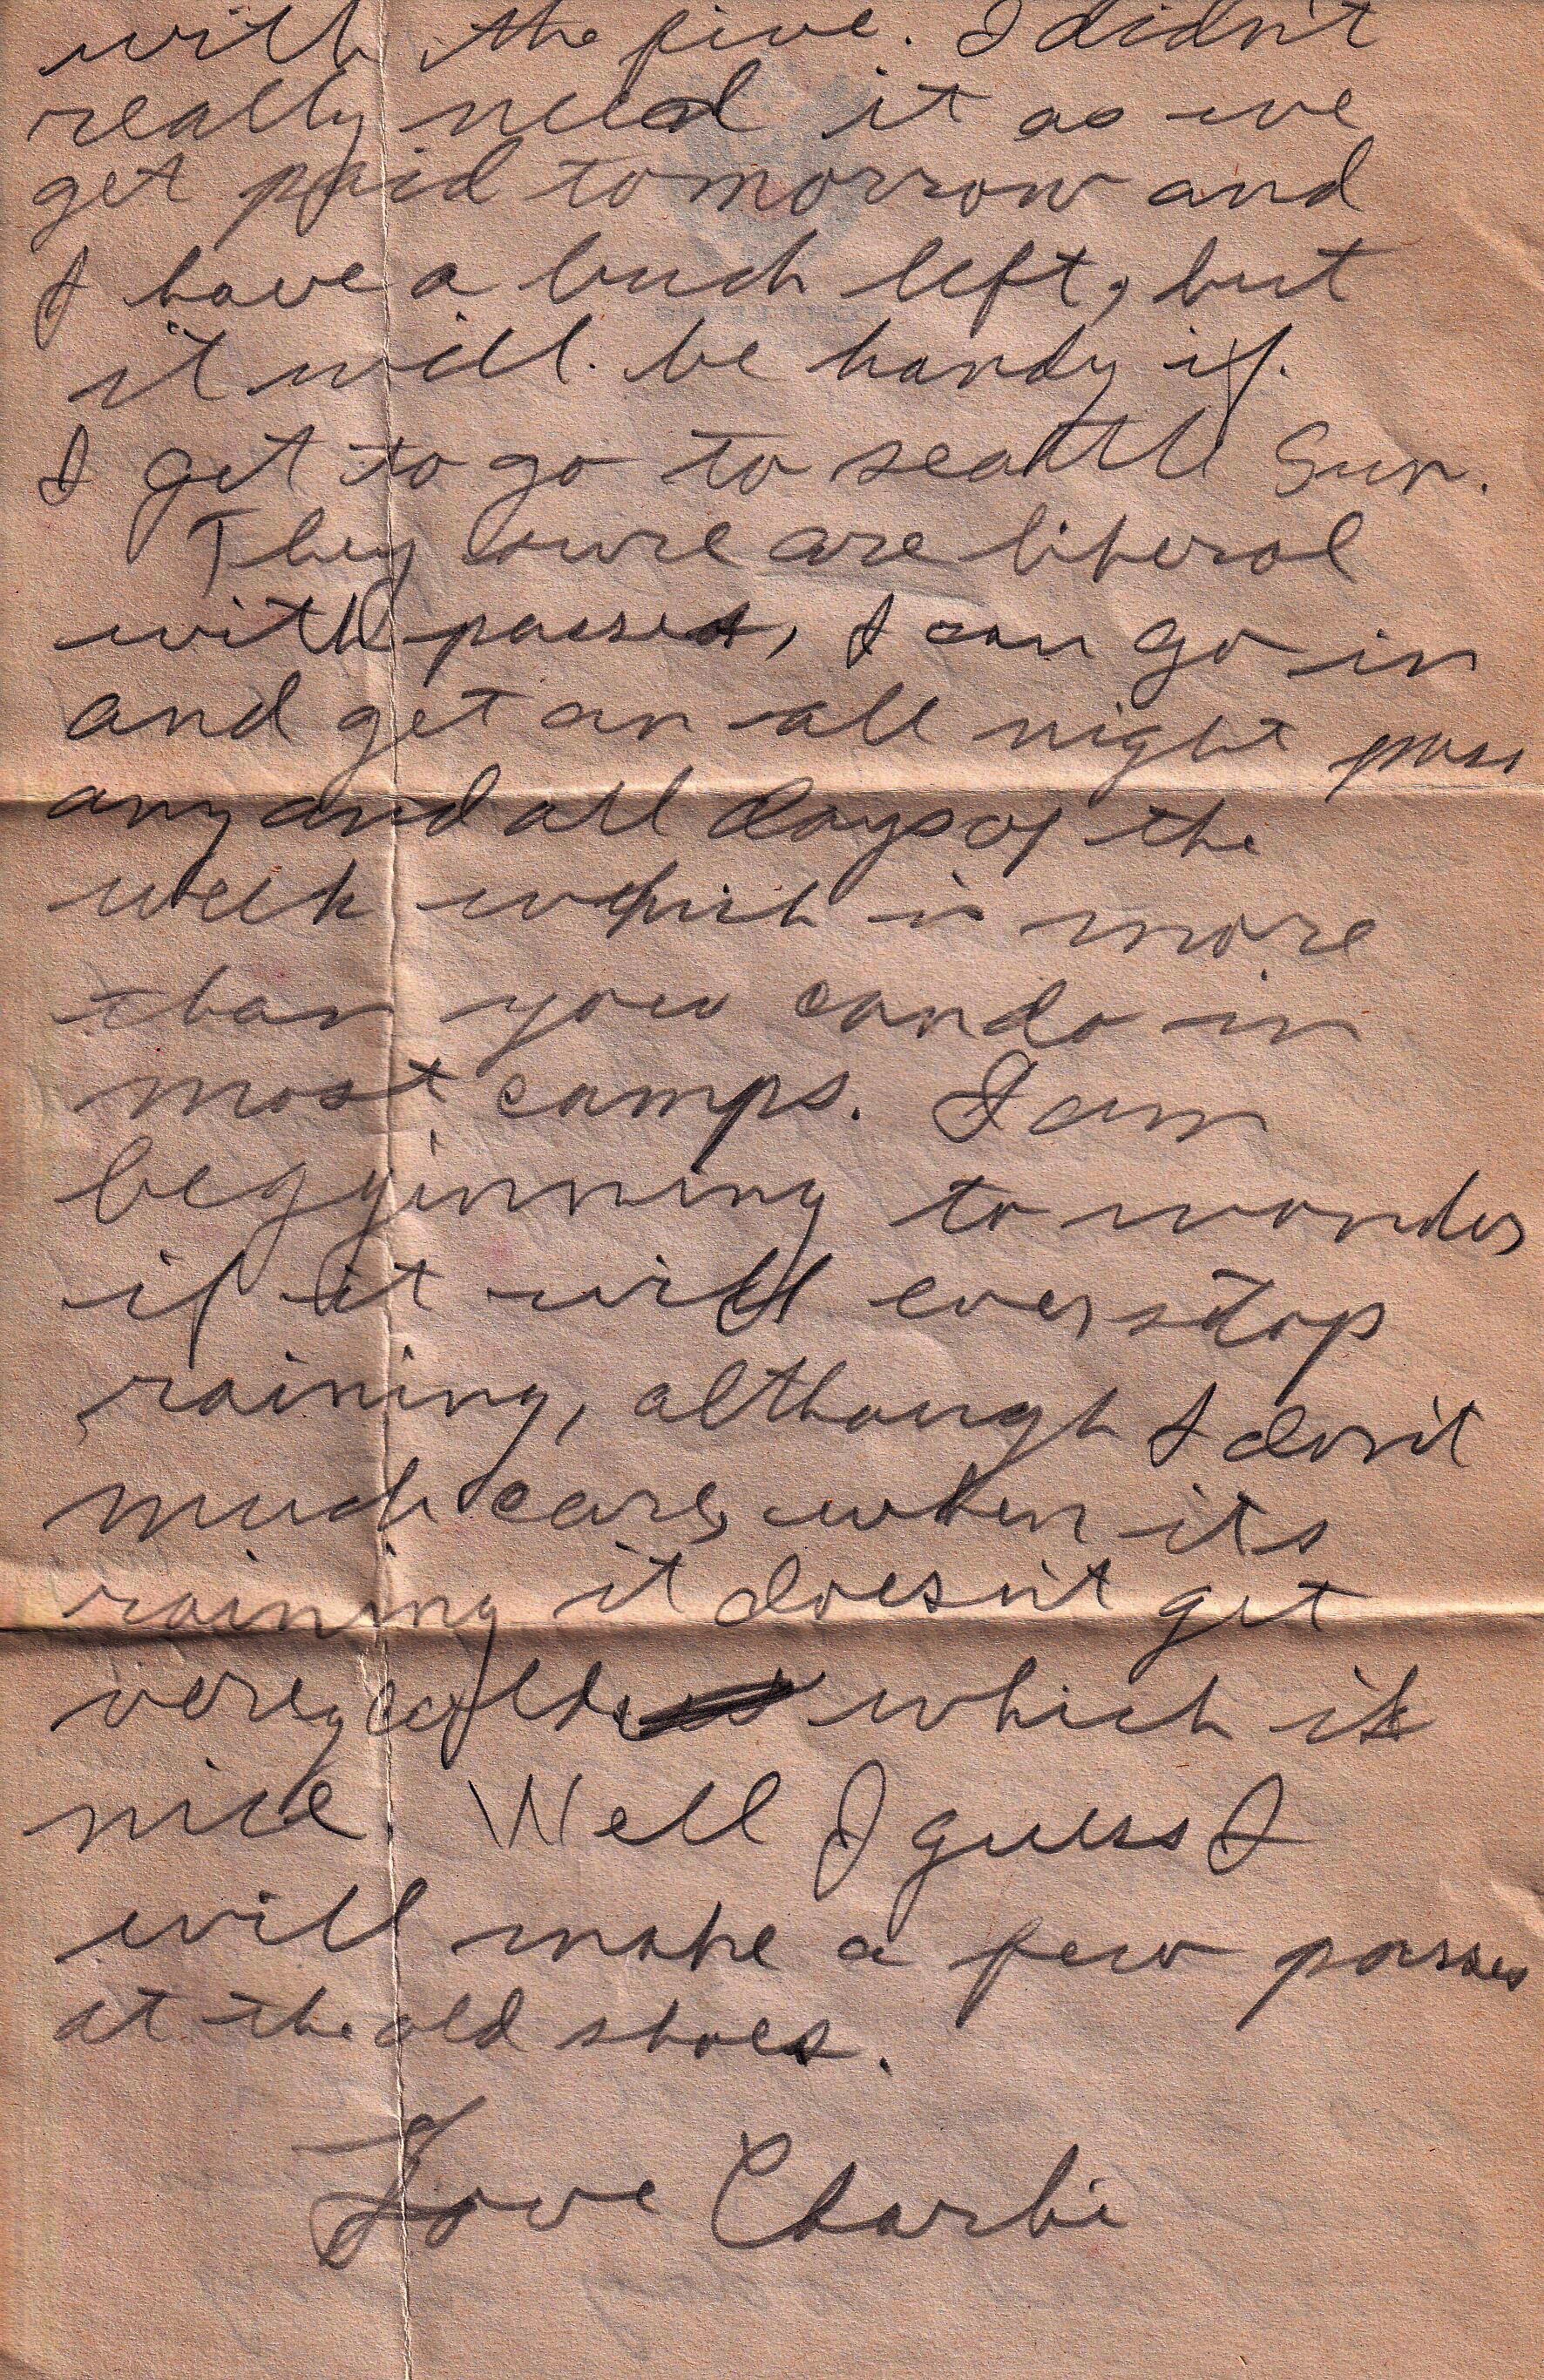 with the five. I didn't
really need it as we
get paid tomorrow and
I have a buck left, but
it will be handy if
I get to go to seattle Sun.
They sure are liberal
with passes, I can go in
and get an all night pass
any and all days of the
week which is more
than you can do in
most camps. I am
begginning to wonder
if it will ever stop
raining, although I don't
much care, when its
raining it doesn't get
very cold, which is
nice. Well I guess I
will make a few passes
at the old shoes.
Love Charlie